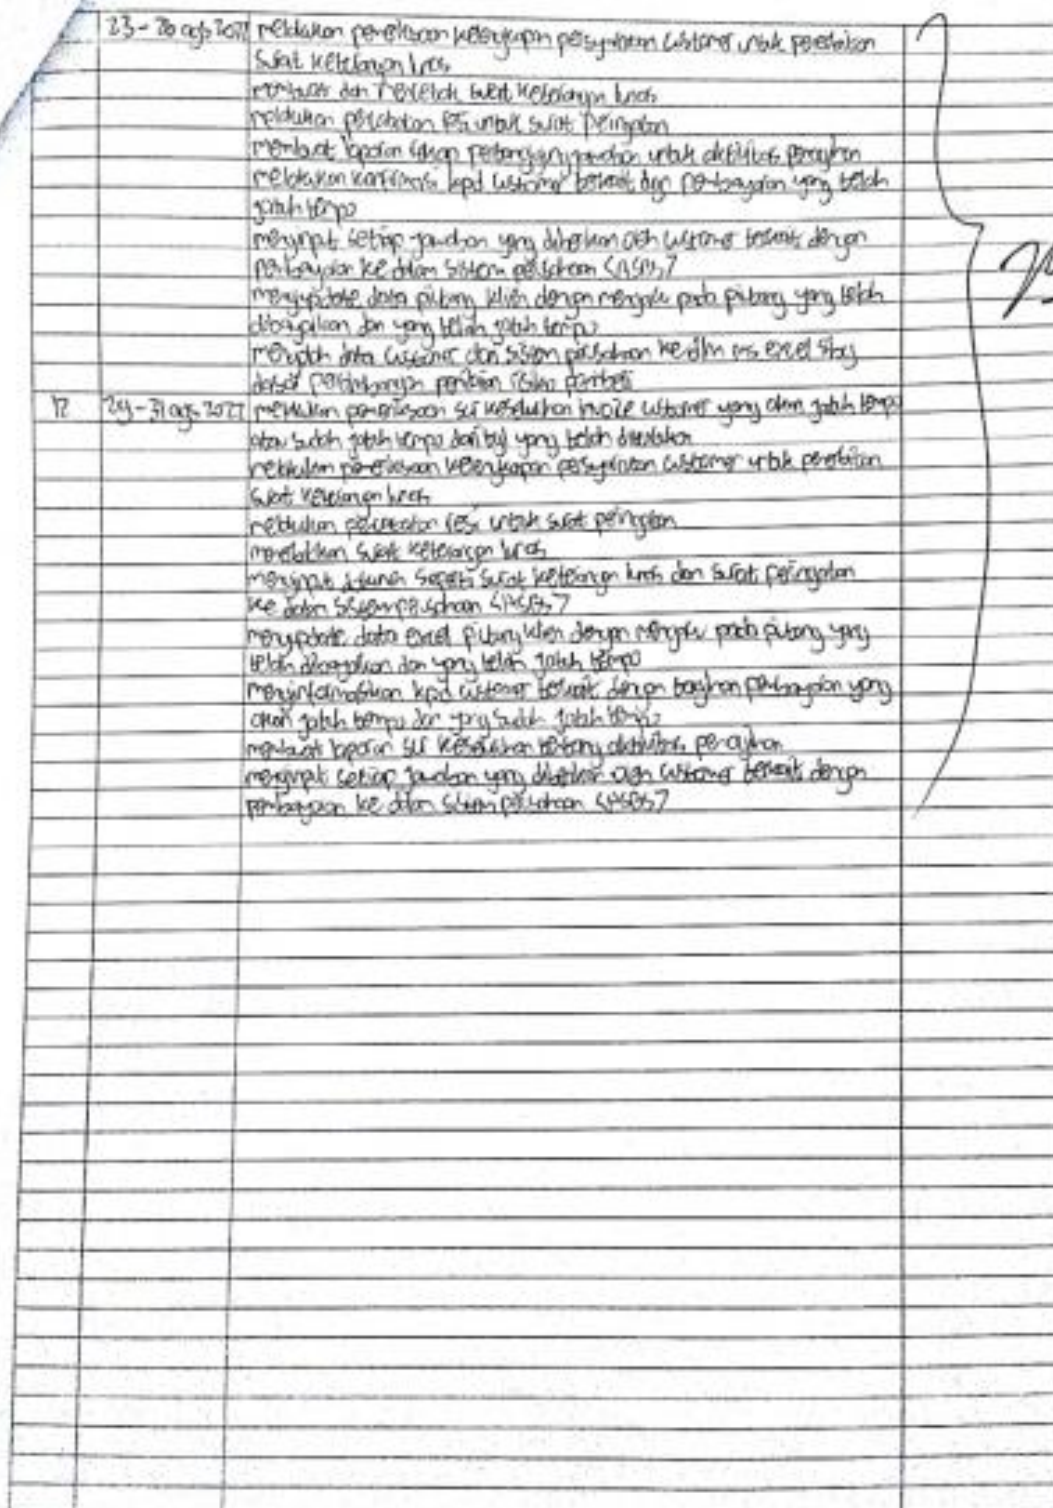 23 - 26 ags 2022 melakukan pemeriksaan kelengkapan persyaratan customer untuk penerbitan
surat keterangan lunas
membuat dan mencetak surat keterangan lunas
melakukan pencatatan resi untuk surat peringatan
membuat laporan pertanggungjawaban untuk aktivitas penagihan
melakukan konfirmasi kpd customer terkait dgn pembayaran yang telah
jatuh tempo
menginput setiap jawaban yang diberikan oleh customer terkait dengan
pembayaran ke dalam sistem perusahaan
mengupdate data piutang klien dengan mengacu pada piutang yang telah
dibayarkan dan yang telah jatuh tempo
data customer dan sistem perusahaan kedlm ms excel sbg
dasar pertimbangan penilaian risiko pembeli
12 29 - 31 ags 2022 melakukan pemeriksaan scr keseluruhan invoice customer yang akan jatuh tempo
atau sudah jatuh tempo dari tgl yang telah ditentukan
melakukan pemeriksaan kelengkapan persyaratan customer untuk penerbitan
surat keterangan lunas
melakukan pencatatan resi untuk surat peringatan
menerbitkan surat keterangan lunas
menginput seperti surat keterangan lunas dan surat peringatan
ke dalam sistem perusahaan
mengupdate data excel piutang klien dengan mengacu pada piutang yang
telah dibayarkan dan yang telah jatuh tempo
menginformasikan kpd customer terkait dengan tagihan pembayaran yang
akan jatuh tempo dan yang sudah jatuh tempo
membuat laporan scr keseluruhan tentang aktivitas penagihan
menginput setiap jawaban yang diberikan oleh customer terkait dengan
pembayaran ke dalam sistem perusahaan